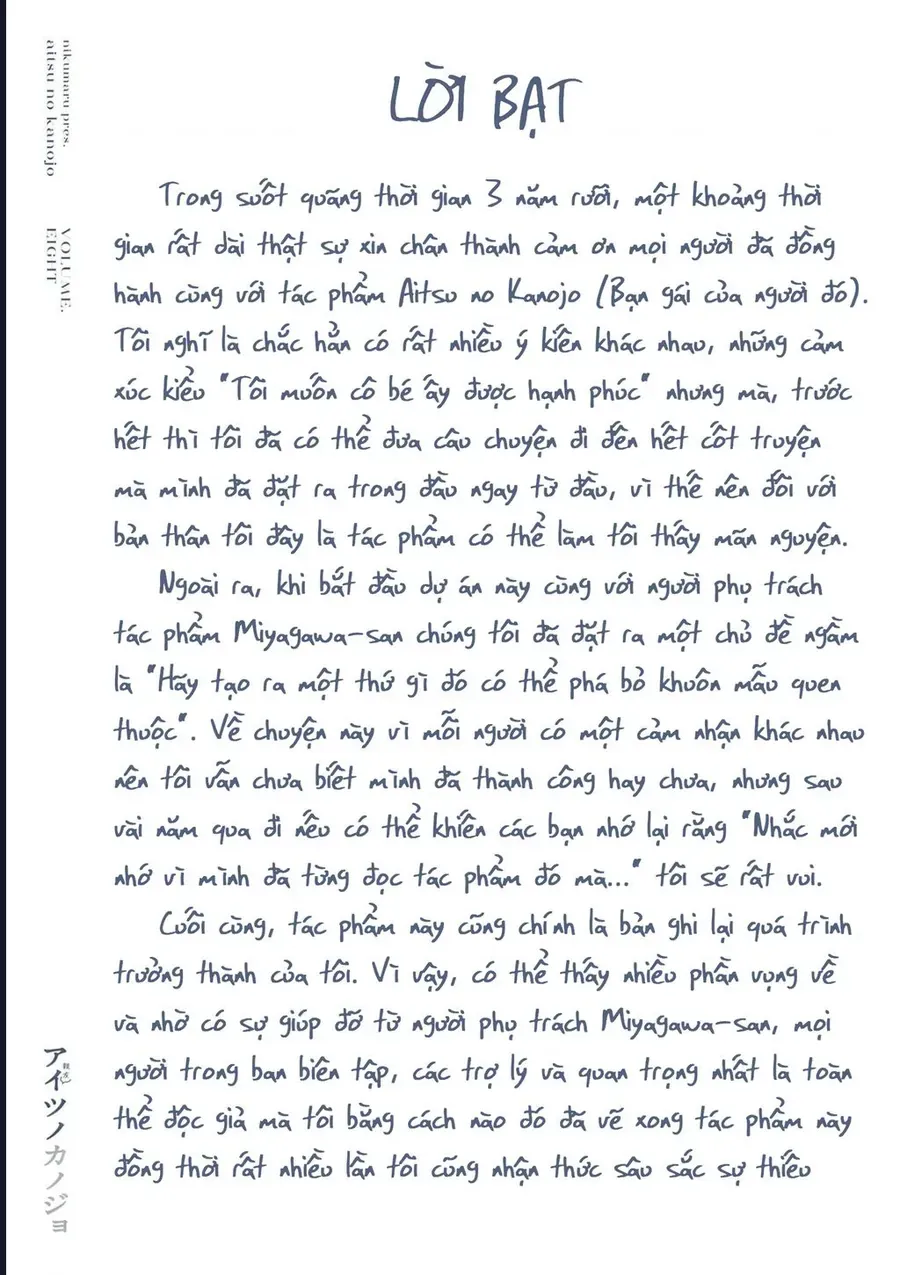 nikumaru pres.
aitsu no kanojo
VOLUME.
EIGHT
LỜI BẠT
Trong suốt quãng thời gian 3 năm rưỡi, một khoảng thời
gian rất dài thật sự xin chân thành cảm ơn mọi người đã đồng
hành cùng với tác phẩm Aitsu no Kanojo (Bạn gái của người đó).
Tôi nghĩ là chắc hẳn có rất nhiều ý kiến khác nhau, những cảm
xúc kiểu "Tôi muốn cô bé ấy được hạnh phúc" nhưng mà, trước
hết thì tôi đã có thể đưa câu chuyện đi đến hết cốt truyện
mà mình đã đặt ra trong đầu ngay từ đầu, vì thế nên đối với
bản thân tôi đây là tác phẩm có thể làm tôi thấy mãn nguyện.
Ngoài ra, khi bắt đầu dự án này cùng với người phụ trách
tác phẩm Miyagawa-san chúng tôi đã đặt ra một chủ đề ngầm
là "Hãy tạo ra một thứ gì đó có thể phá bỏ khuôn mẫu quen
thuộc". Về chuyện này vì mỗi người có một cảm nhận khác nhau
nên tôi vẫn chưa biết mình đã thành công hay chưa, nhưng sau
vài năm qua đi nếu có thể khiến các bạn nhớ lại rằng "Nhắc mới
nhớ vì mình đã từng đọc tác phẩm đó mà..." tôi sẽ rất vui.
Cuối cùng, tác phẩm này cũng chính là bản ghi lại quá trình
trưởng thành của tôi. Vì vậy, có thể thấy nhiều phần vụng về
và nhờ có sự giúp đỡ từ người phụ trách Miyagawa-san, mọi
người trong ban biên tập, các trợ lý và quan trọng nhất là toàn
thể độc giả mà tôi bằng cách nào đó đã vẽ xong tác phẩm này
đồng thời rất nhiều lần tôi cũng nhận thức sâu sắc sự thiếu
アイツノカノジョ